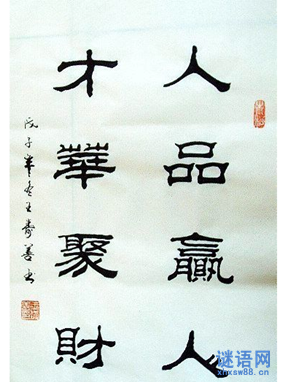 人品贏人
才華聚財
戊子冬王壽善书
谜语网
zhxsw88.cn